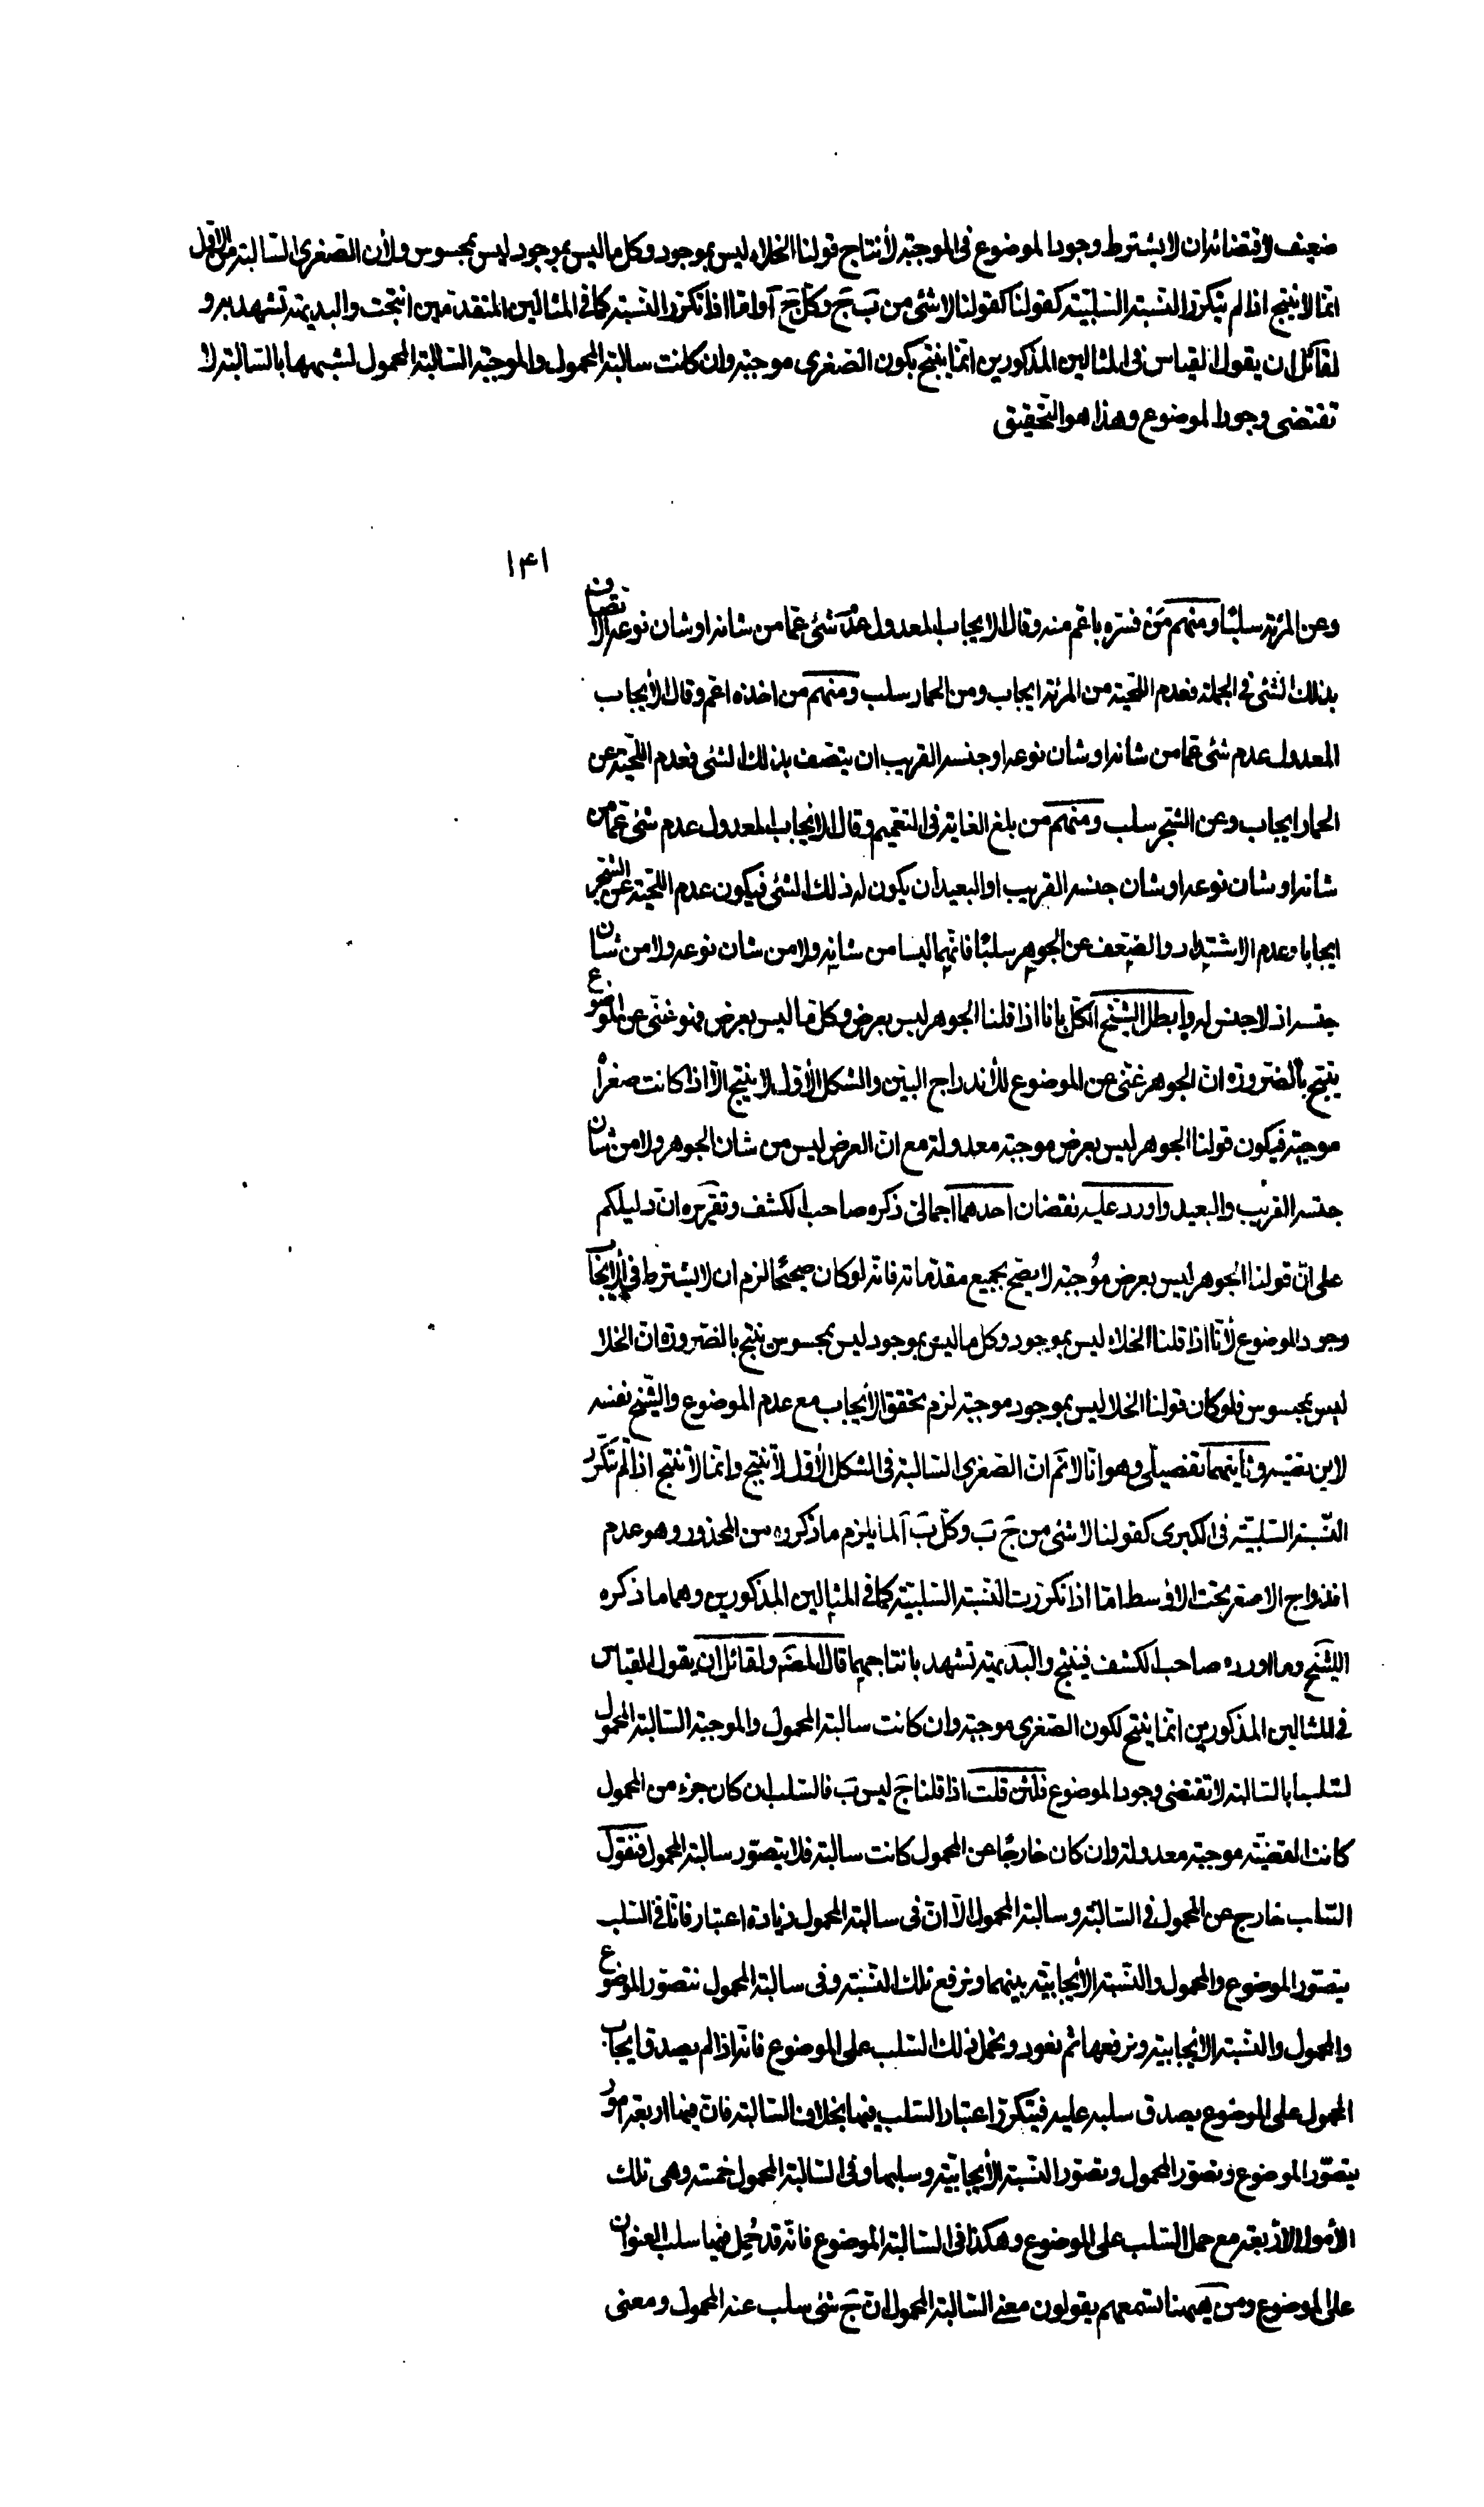 ضعيف لاقتضائه ان لا يشترط وجود الموضوع فى الموجبة لأنتاج قولنا الخلاء ليس بموجود وكل ما ليس بموجود ليس بمحسوس ولأن الصغرى السالبة من الاول
انما لا ينتج اذا لم يتكرر النسبة السلبية كقولنا كقولنا لا شئ من بَ جَ وكل جَ آ واما اذا تكرر النسبة كما فى المثالين المتقدمين انتجت والبديهة تشهد به و
لقائل ان يقول القياس فى المثالين المذكورين انما ينتج بكون الصغرى موجبة وان كانت سالبة المحمول والموجبة السالبة المحمول لشبهها بالسالبة لا
تقتضى وجود الموضوع وهذا هو التحقيق
١۴١
وعن المرئة سلبًا ومنهم مَن فسره باعم منه وقال الايجاب المعدول عدم شئ عمّا من شانه او شان نوعه الاتصاف
بذلك الشئ فى الجملة فعدم اللحية من المرئة ايجاب ومن الحمار سلب ومنهم من اخذه اعم وقال الأيجاب
المعدول عدم شئ عمّا من شأنه او شان نوعه او جنسه القريب ان يتصف بذلك الشئ فعدم اللحية عن
الحمار ايجاب وعن الشجر سلب ومنهم من بلغ الغاية فى التعميم وقال الايجاب المعدول عدم شئ عمّا من
شانه او شان نوعه او شان جنسه القريب او البعيد أن يكون له ذلك الشئ فيكون عدم اللحية عن الشجر
ايجابا وعدم الاشتداد والضعف عن الجوهر سلبًا فانهما ليسا من شانه ولا من شان نوعه ولا من شان
جنسه اذ لا جنس له وابطل الشيخ الكل بانا اذا قلنا الجوهر ليس بعرض وكل ما ليس بعرض فهو غنى عن الموضوع
ينتج بالضرورة ان الجوهر غنى عن الموضوع للأندراج البيّن والشكل الأول لا ينتج الّا اذا كانت صغراه
موجبة فيكون قولنا الجوهر ليس بعرض موجبة معدولة مع ان العرض ليس من شان الجوهر ولا من شان
جنسه القريب والبعيد واورد عليه نقضان احدهما اجمالى ذكره صاحب الكشف وتقريره ان دليلكم
على انّ قولنا الجوهر ليس بعرض موُجبة لا يصحّ بجميع مقدّماته فانه لو كان صحيحًا لزم ان لا يشترط فى الايجاب
وجود الموضوع لأنّا اذا قلنا الخلاء ليس بموجود وكل ما ليس بموجود ليس بمحسوس ينتج بالضرورة ان الخلا
ليس بمحسوس فلو كان قولنا الخلا ليس بموجود موجبة لزم تحقق الأيجاب مع عدم الموضوع والشيخ نفسه
لا يرتضيه وثانيهما تفصيلى وهو انّا لا نَم انّ الصغرى السالبة فى الشكل الأول لا تنتج وانّما لا تنتج اذا لم يتكرّر
النّسبة السّلبيّة فى الكبرى كقولنا لا شئ من جَ بَ وكل بَ آ لما يلزم ما ذكروه من المحذور وهو عدم
اندراج الاصغر تحت الاوسط امّا اذا تكررت النّسبة السّلبية كما فى المثالين المذكورين وهما ما ذكره
الشّيخ وما اورده صاحب الكشف فينتج والبديهيّة تشهد بانتاجهما قال المصَ ولقائل ان يقول القياس
فى المثالين المذكورين انّما ينتج لكون الصّغرى موجبة وان كانت سالبة المحمول والموجبة السالبة المحمول
لشبهها بالسالبة لا تقتضى وجود الموضوع فلئن قلت اذا قلنا جَ ليس بَ فالسّلب ان كان جزء من المحمول
كانت القضيّة موجبة معدولة وان كان خارجًا عن المحمول كانت سالبة فلا يتصوّر سالبة المحمول فنقول
السّلب خارج عن المحمول فى السّالبة وسالبة المحمول الّا انّ فى سالبة المحمول زيادة اعتبار فانّا فى السّلب
نتصوّر الموضوع والمحمول والنّسبة الأيجابيّة بينهما ونرفع تلك النّسبة وفى سالبة المحمول نتصوّر الموضوع
والمحمول والنّسبة الأيجابية ونرفعها ثم نعود ونحمل ذلك السّلب على الموضوع فانّه اذا لم يصدق ايجاب
المحمول على الموضوع يصدق سلبه عليه فيتكرّر اعتبار السّلب فيها بخلاف السّالبة فانّ فيها اربعة امور
يتصوّر الموضوع وتصوّر المحمول وتصوّر النّسبة الأيجابيّة وسلبها وفى السّالبة المحمول خمسة وهى تلك
الأمور الأربعة مع حمل السّلب على الموضوع وهكذا فى السّالبة الموضوع فانّه قد حُمِل فيها سلب العنوان
على الموضوع ومن ههنا تسمعهم يقولون معنى السّالبة المحمول انّ جَ شئ سلب عنه المحمول ومعنى